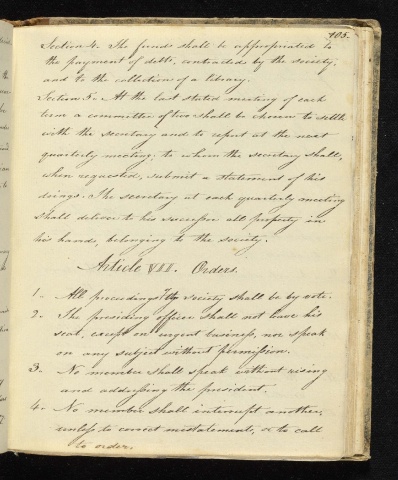 105.
Section 4. The funds shall be appropriated to
the payment of debts, contracted by the society;
and to the collection of a library.
Section 5. At the last stated meeting of each
term a committee of two shall be chosen to settle
with the secretary and to report at the next
quarterly meeting; to whom the secretary shall,
when requested, submit a statement of his
doings. The secretary at each quarterly meeting
shall deliver to his successor all property in
his hand, belonging to the society.
Article VII. Orders.
1. All proceedings of the society shall be by vote.
2. The presiding officer shall not leave his
seat, except on urgent business, nor speak
on any subject without permission.
3. No member shall speak without rising
and addressing the president.
4. No member shall interrupt another,
unless to correct misstatement, or to call
to order.